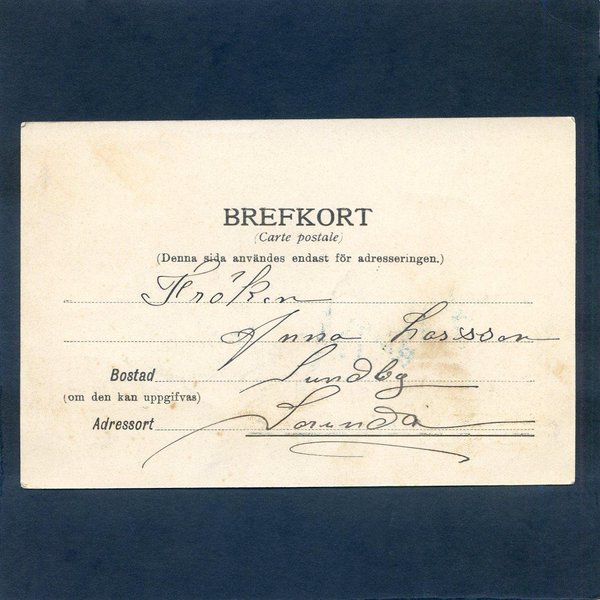 BREFKORT
(Carte postale)
(Denna sida användes endast för adresseringen.)
Fröken
Anna Larsson
Bostad Lundby
(om den kan uppgifvas)
Adressort Sorunda